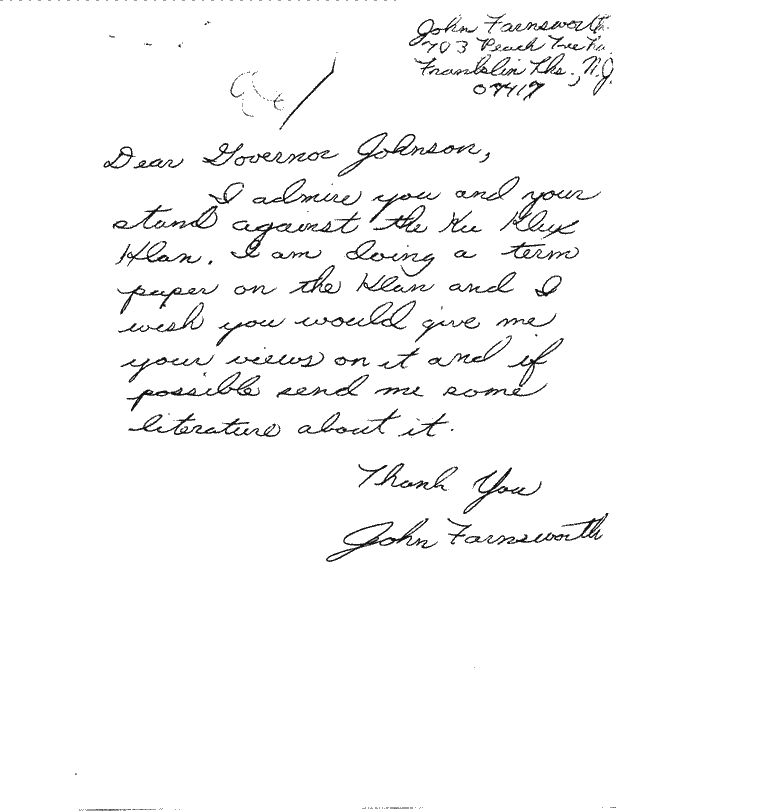 John Farnsworth
703 Peach Tree
Franklin Lks., N.J.
07417
Dear Governor Johnson,
I admire you and your
stand against the Ku Klux
Klan. I am doing a term
paper on the Klan and I
wish you would give me
your views on it and if
possible send me some
literature about it.
Thank You
John Farnsworth